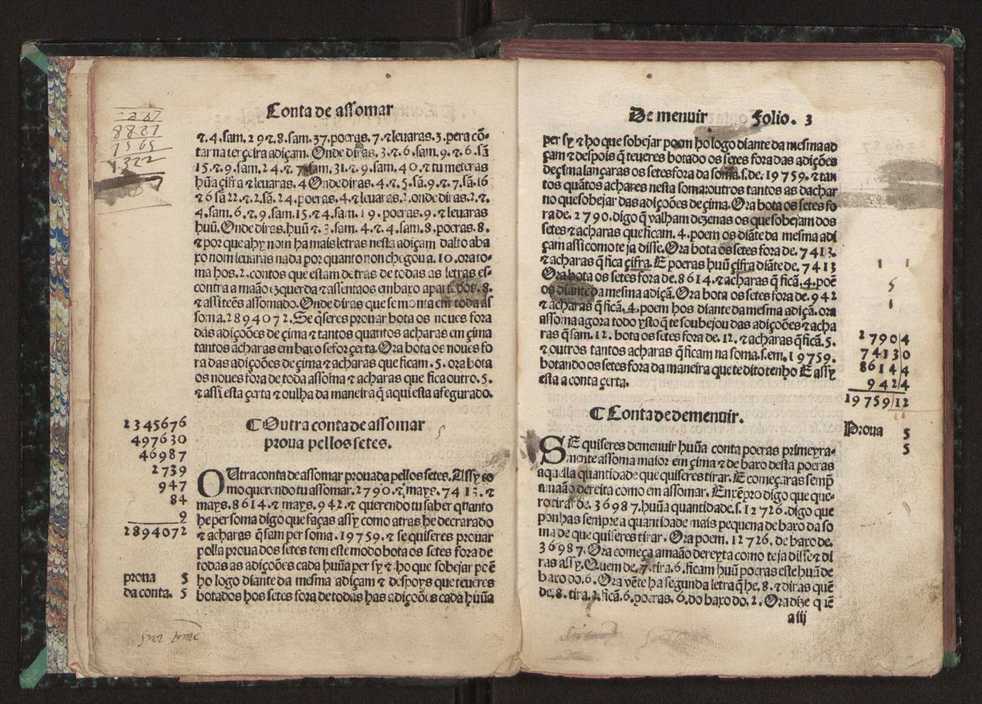 Conta de assomar
8821
1565
1322
⁊.4.sam.29⁊.8.sam.37.poeras.7.⁊leuaras.3.pera cõ-
tar na terçeira adiçam. Onde diras.3.⁊.6.sam.9.⁊.6.sã
15.⁊.9.sam.24.⁊.7.sam.31.⁊.9.sam.40.⁊ tu meteras
hũa çifra ⁊ leuaras.4 Onde diras.4.⁊.5.sã.9.⁊.7.sã.16
⁊6 sã22.⁊.2.sã.24.poeras.4.⁊leuaras.2.onde diras.2.⁊.
4.sam.6.⁊.9.sam.15.⁊4.sam.19.poeras.9.⁊ leuaras
huũ.Onde diras.huũ ⁊.3.sam.4.⁊.4.sam.8.poeras.8.
⁊ por que ahy nom ha mais letras nesta adiçam dalto aba
xo nom leuaras nada por quanto non chegou a.10.ora to-
ma hos.2.contos que estam detras de todas as letras es-
contra a maão izquerda ⁊ assentaos embaxo apar dos.8.
⁊ assi tẽes assomado. Onde diras que se monta em toda as
soma.2894072.Se q̃seres prouar bota os noues fora
das adições de çima ⁊ tantos quantos acharas em çima
tantos acharas em baxo se for çerta. Ora bota os noues fo
ra das adições de çima ⁊ acharas que ficam.5.ora bota
os noues fora de toda assoma ⁊ acharas que fica outro.5.
⁊ assi esta çerta ⁊ oulha da maneira q̃ aqui esta afegurado.
C Outra conta de assomar
proua pellos setes.
2345676
497630
46987
2739
947
84
9
2894072
proua 5
da conta. 5
OUtra conta de assomar prouada pellos setes. Assy co
mo querendo tu assomar.2790.⁊ mays.7413.⁊
mays.8614.⁊ mays.942.⁊ querendo tu saber quanto
he per soma digo que faças assy como atras he decrarado
⁊ acharas q̃ sam per soma.19759.⁊ se quiseres prouar
polla proua dos setes tem este modo bota os setes fora de
todas as adições cada hũua per sy ⁊ ho que sobejar põe
ho logo diante da mesma adiçam ⁊ despoys que teueres
botados hos setes fora de todas has adiçoões cada hũua
De menuir Folio. 3
per sy ⁊ ho que sobejar poem ho logo diante da mesma ad
çam ⁊ despois q̃ teueres botado os setes fora das adições
de çima lançaras os setes fora da soma.s.de.19759.⁊ tan
tos quãtos achares nesta soma: outros tantos as de achar
no que sobejar das adições de çima. Ora bota os setes fo
ra de.2790.digo q̃ valham dezenas os que sobejam dos
setes ⁊ acharas que ficam.4.poem os diãte da mesma adi
çam assi como te ja disse. Ora bota os setes fora de.7413.
⁊ acharas q̃ fica çifra. E poeras huũ çifra diãte de.7413
Ora bota os setes fora de.8614.⁊ acharas q̃ ficã.4.poẽ
os diante da mesma adiçã. Ora bota os setes fora de.942
⁊ acharas q̃ ficã.4.poem hos diante da mesma adiçã. ora
assoma agora todo ysto q̃ te soubejou das adições ⁊ acha
ras q̃ sam.12.bota os setes fora de.12.⁊ acharas q̃ ficã.5.
⁊ outros tantos acharas q̃ ficam na soma.s.em.19759.
botando os setes fora da maneira que te dito tenho E assy
esta a conta çerta.
1 1
5
1
2790 4
7413 0
8614 4
942 4
19759 12
Proua 5
5
C Conta de demenuir.
SE quiseres demenuir hũua conta poeras primeyra-
mente assoma maior em çima ⁊ de baxo desta poeras
aquella quantidade que quiseres tirar. E começaras semp̃
a maão dereita como em assomar. Em exẽpro digo que que-
ro tirar de.36987.hũua quantidade.s.12726.digo que
ponhas sempre a quantidade mais pequena de baxo da so
ma de que quiseres tirar. Ora poem.12726.de baxo de.
36987.Ora começa a maão dereyta como te ja disse ⁊ di
ras assy. Quem de.7.tira.6.ficam huũ poeras este huũ de
baxo do.6.Ora vẽte ha segunda letra q̃ he.8.⁊ diras quẽ
de.8.tira.2.ficã.6.poeras.6.do baxo do.2.Ora dize quẽ
aiij